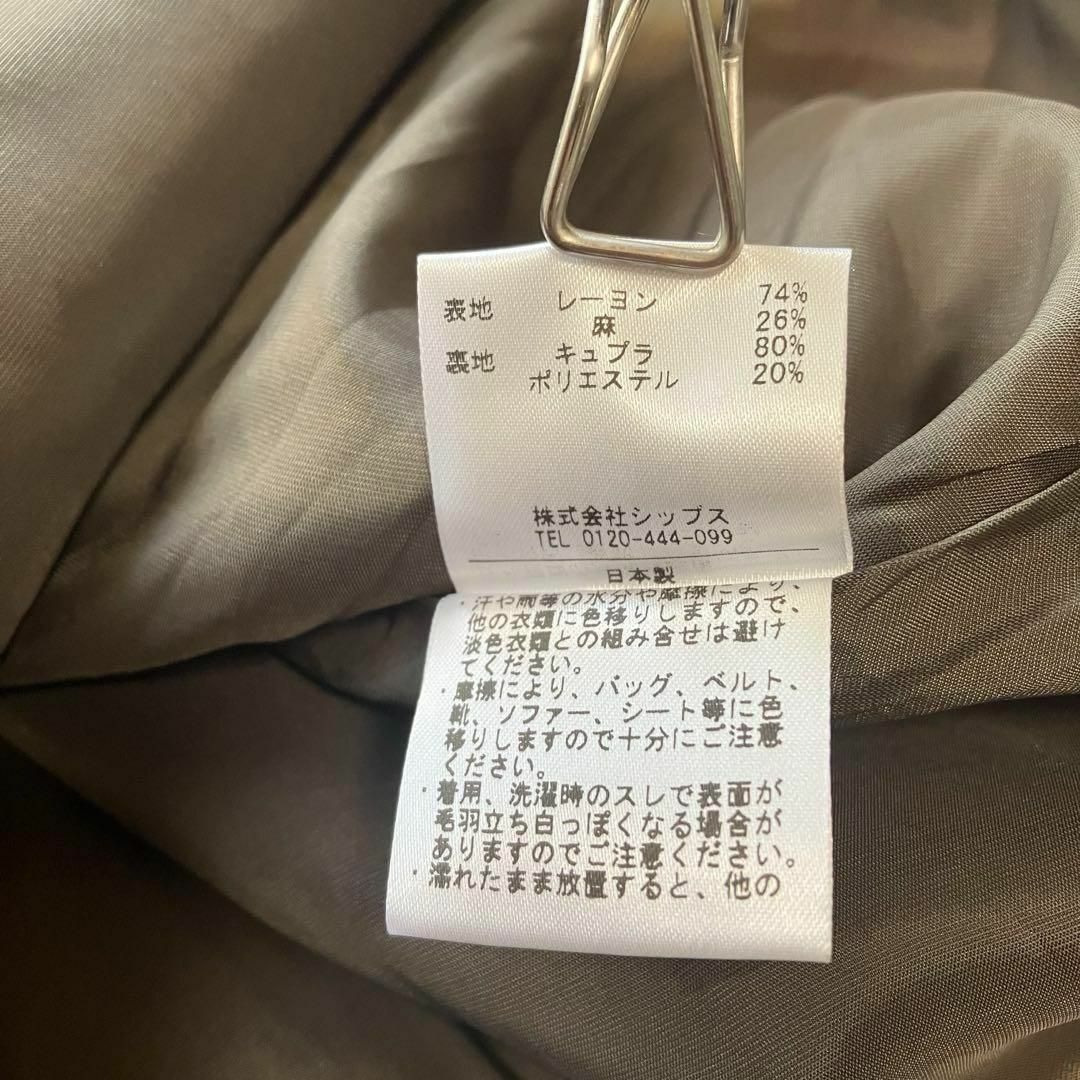 表地 レーヨン 74%
麻 26%
裏地 キュプラ 80%
ポリエステル 20%
株式会社シップス
TEL 0120-444-099
日本製
・汗や雨等の水分や摩擦により、
他の衣類に色移りしますので、
淡色衣類との組み合せは避け
てください。
・摩擦により、バッグ、ベルト、
靴、ソファー、シート等に色
移りしますので十分にご注意
ください。
・着用、洗濯時のスレで表面が
毛羽立ち白っぽくなる場合が
ありますのでご注意ください。
・濡れたまま放置すると、他の